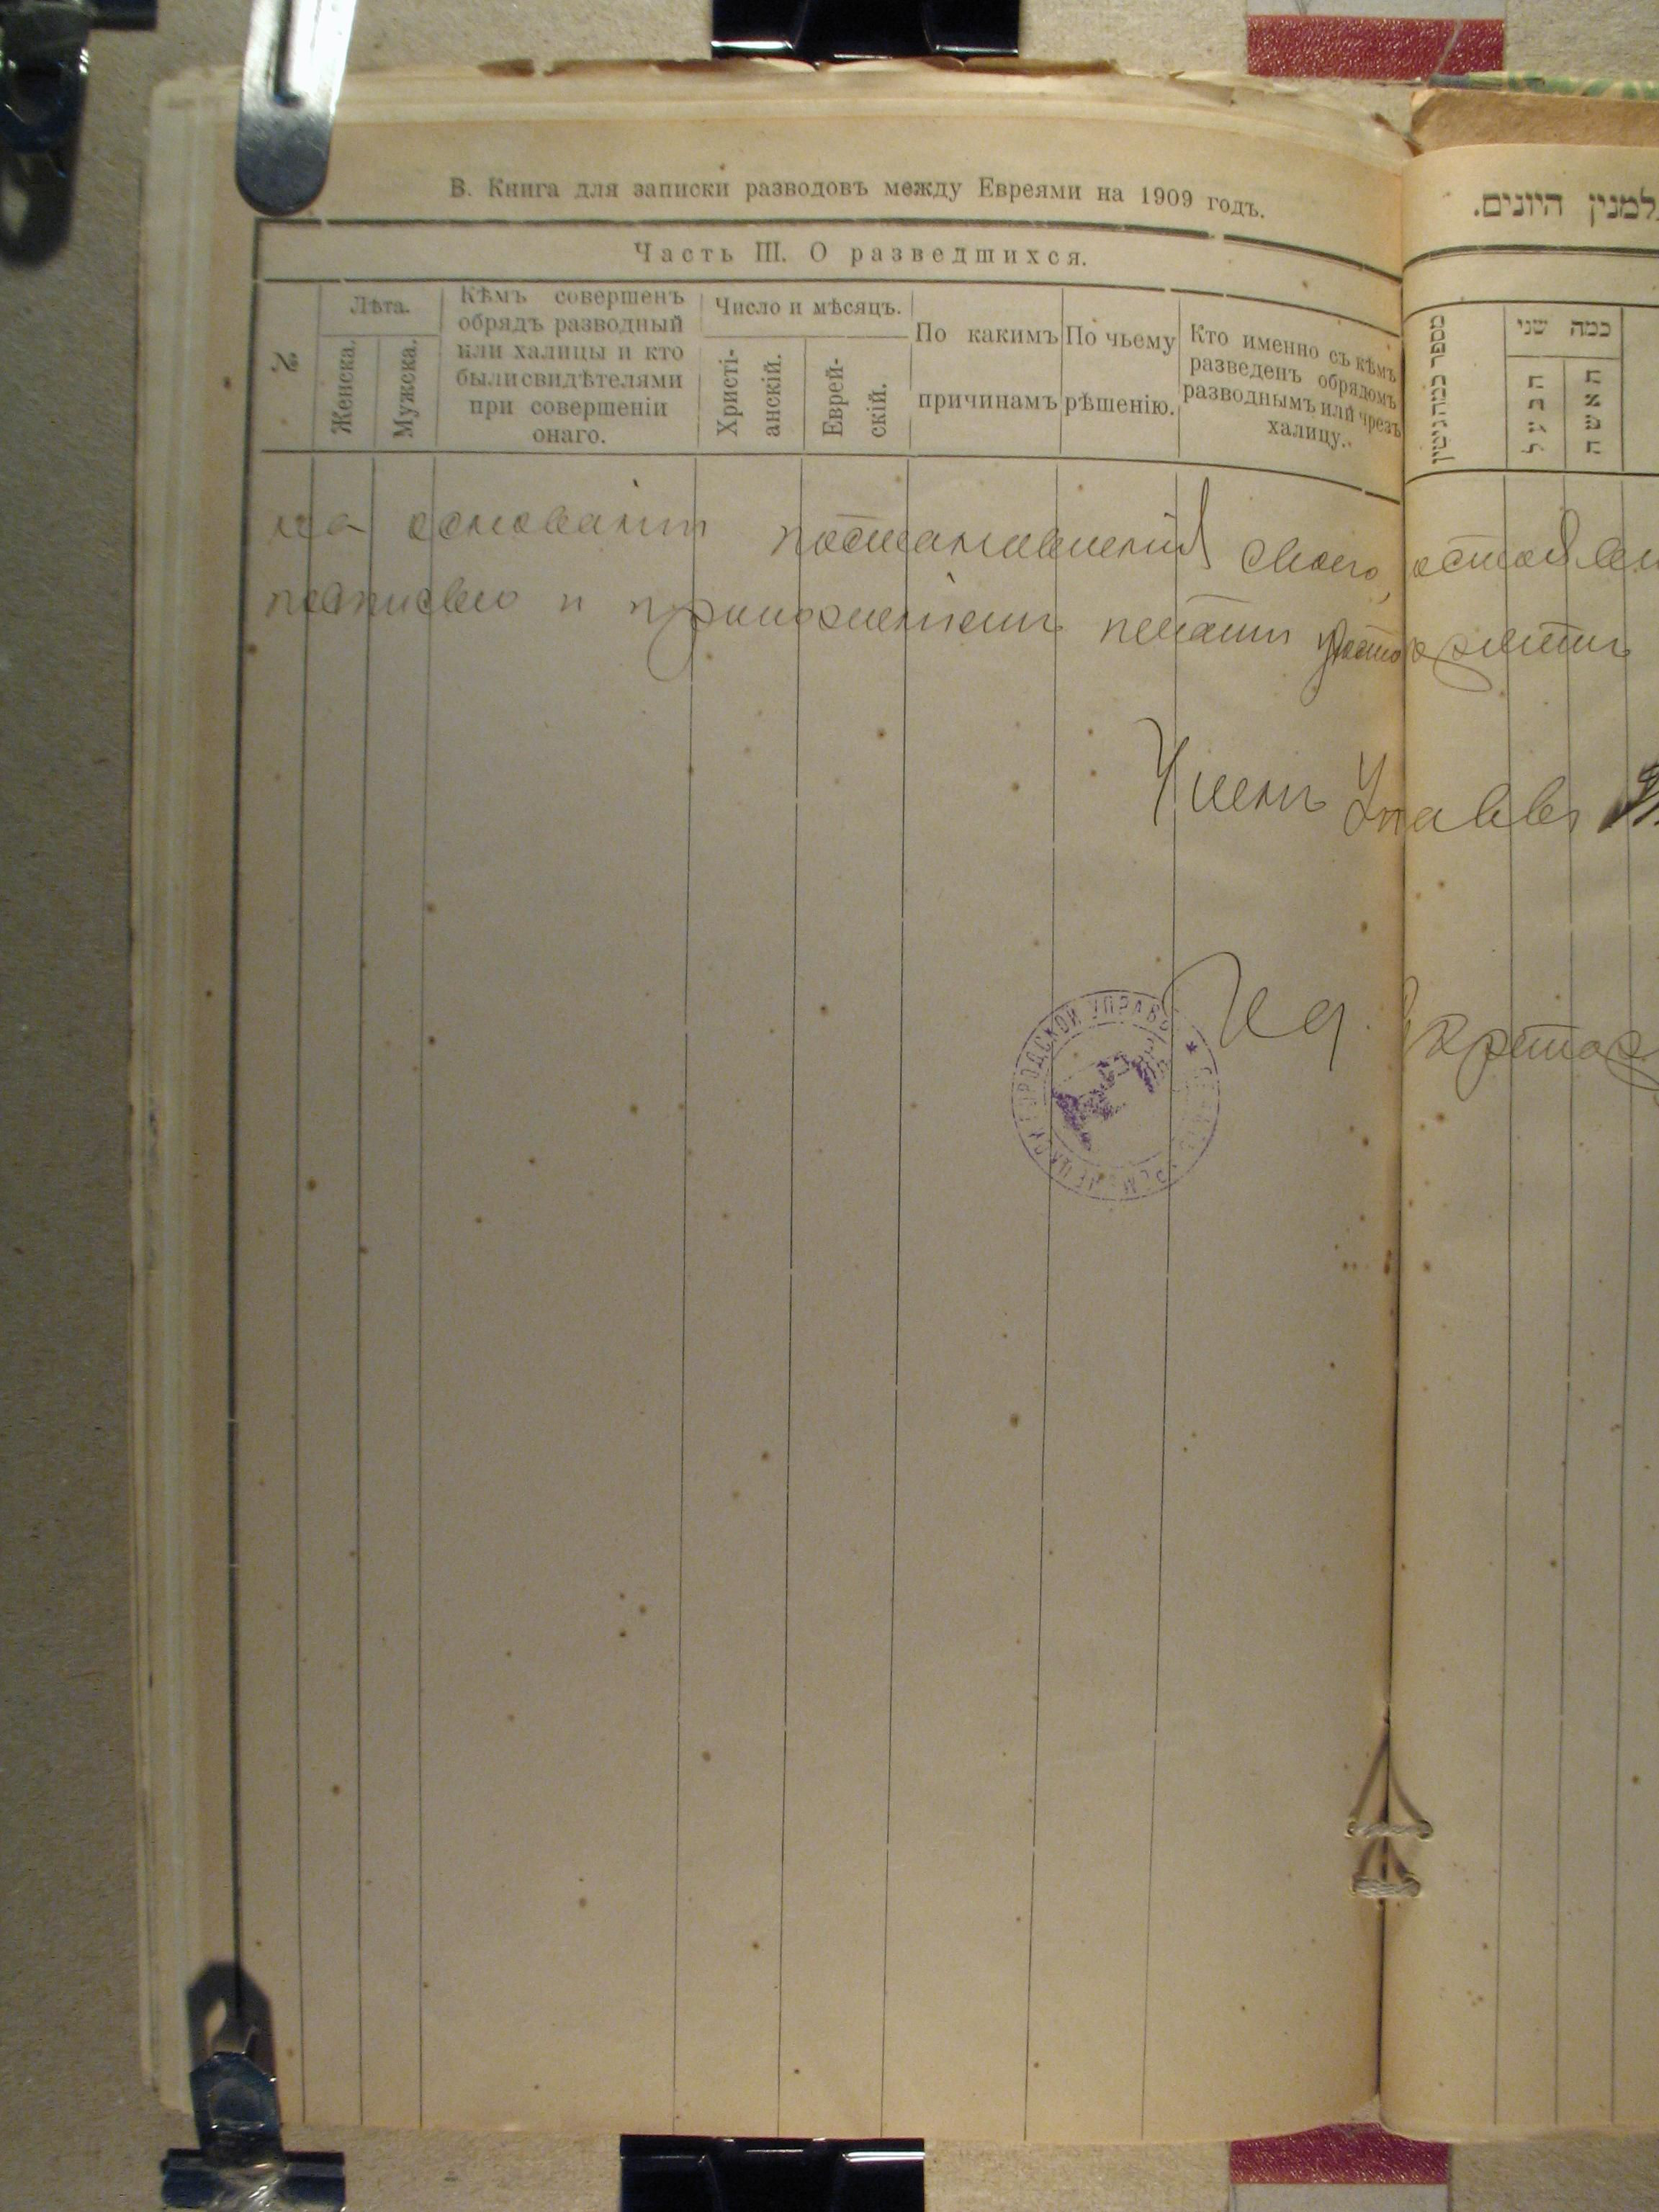 В. Книга для записки разводовъ между Евреями на 1909 годъ.
למנין היונים.
Часть III. О разведшихся.
№
Лѣта.
Женска.
Мужска.
Кѣмъ совершенъ
обрядъ разводный
или халицы и кто
были свидѣтелями
при совершеніи
онаго.
Число и мѣсяцъ.
Христі-
анскій.
Еврей-
скій.
По какимъ
причинамъ
По чьему
рѣшенію.
Кто именно съ кѣмъ
разведенъ обрядомъ
разводнымъ или чрезъ
халицу.
כמה שני
הבעל
האשה
на основаніи постановленія своего,
подписью и приложеніемъ печати
Членъ Управы
Секретар
ГОРОДСКОЙ УПРАВЫ